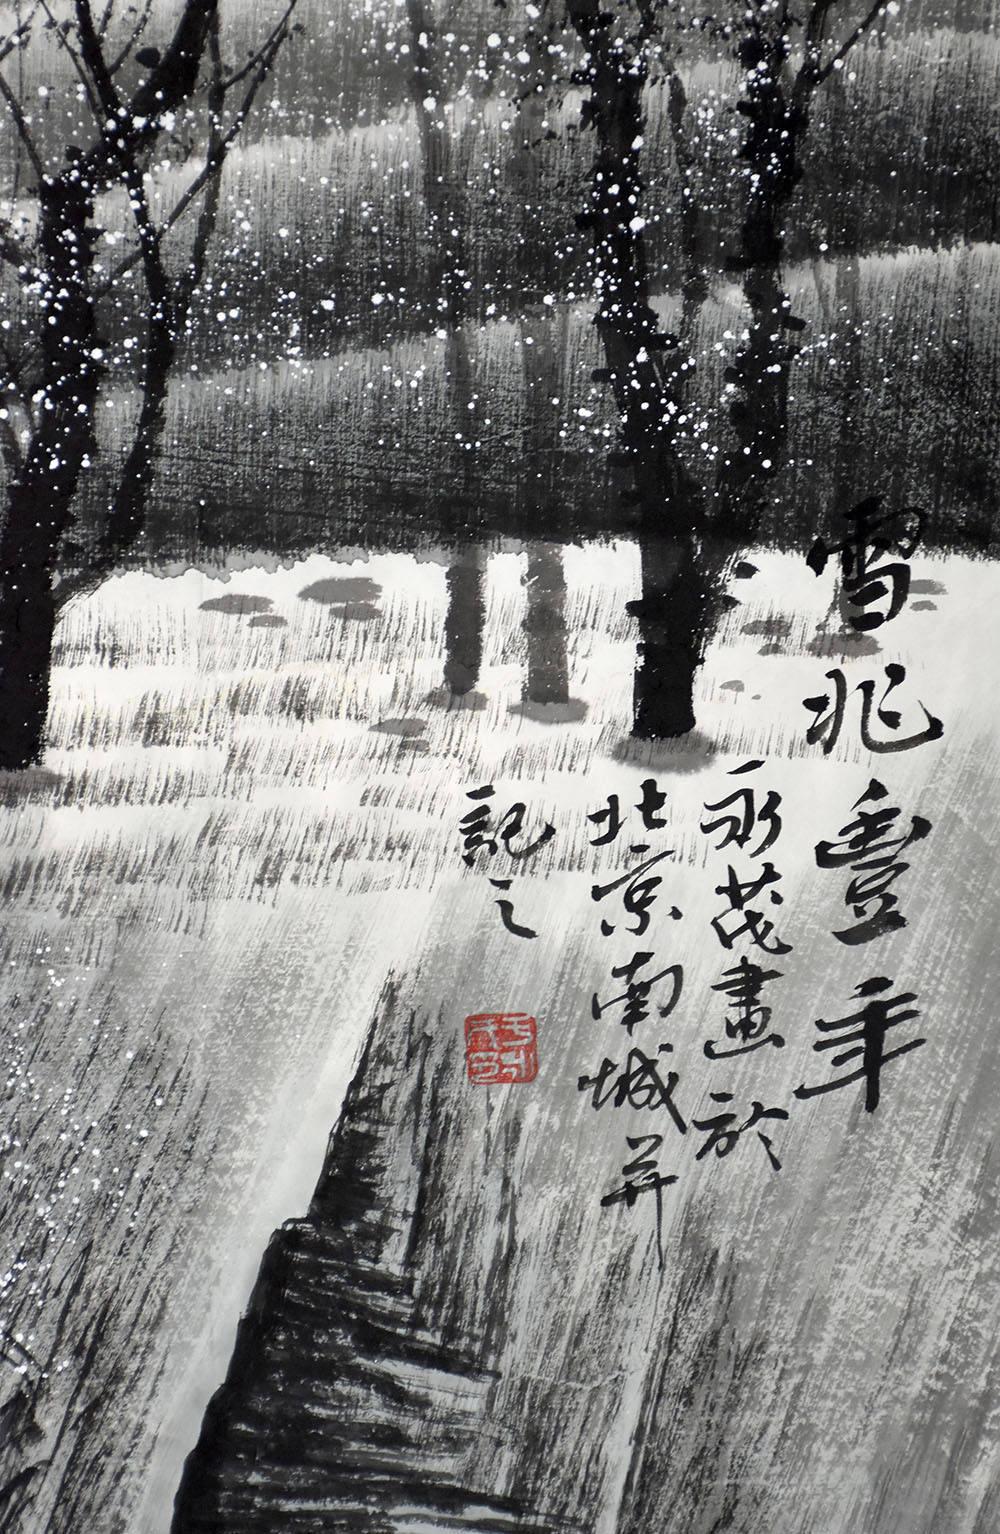 雪兆豐年
永茂畫於
北京南城并
記之